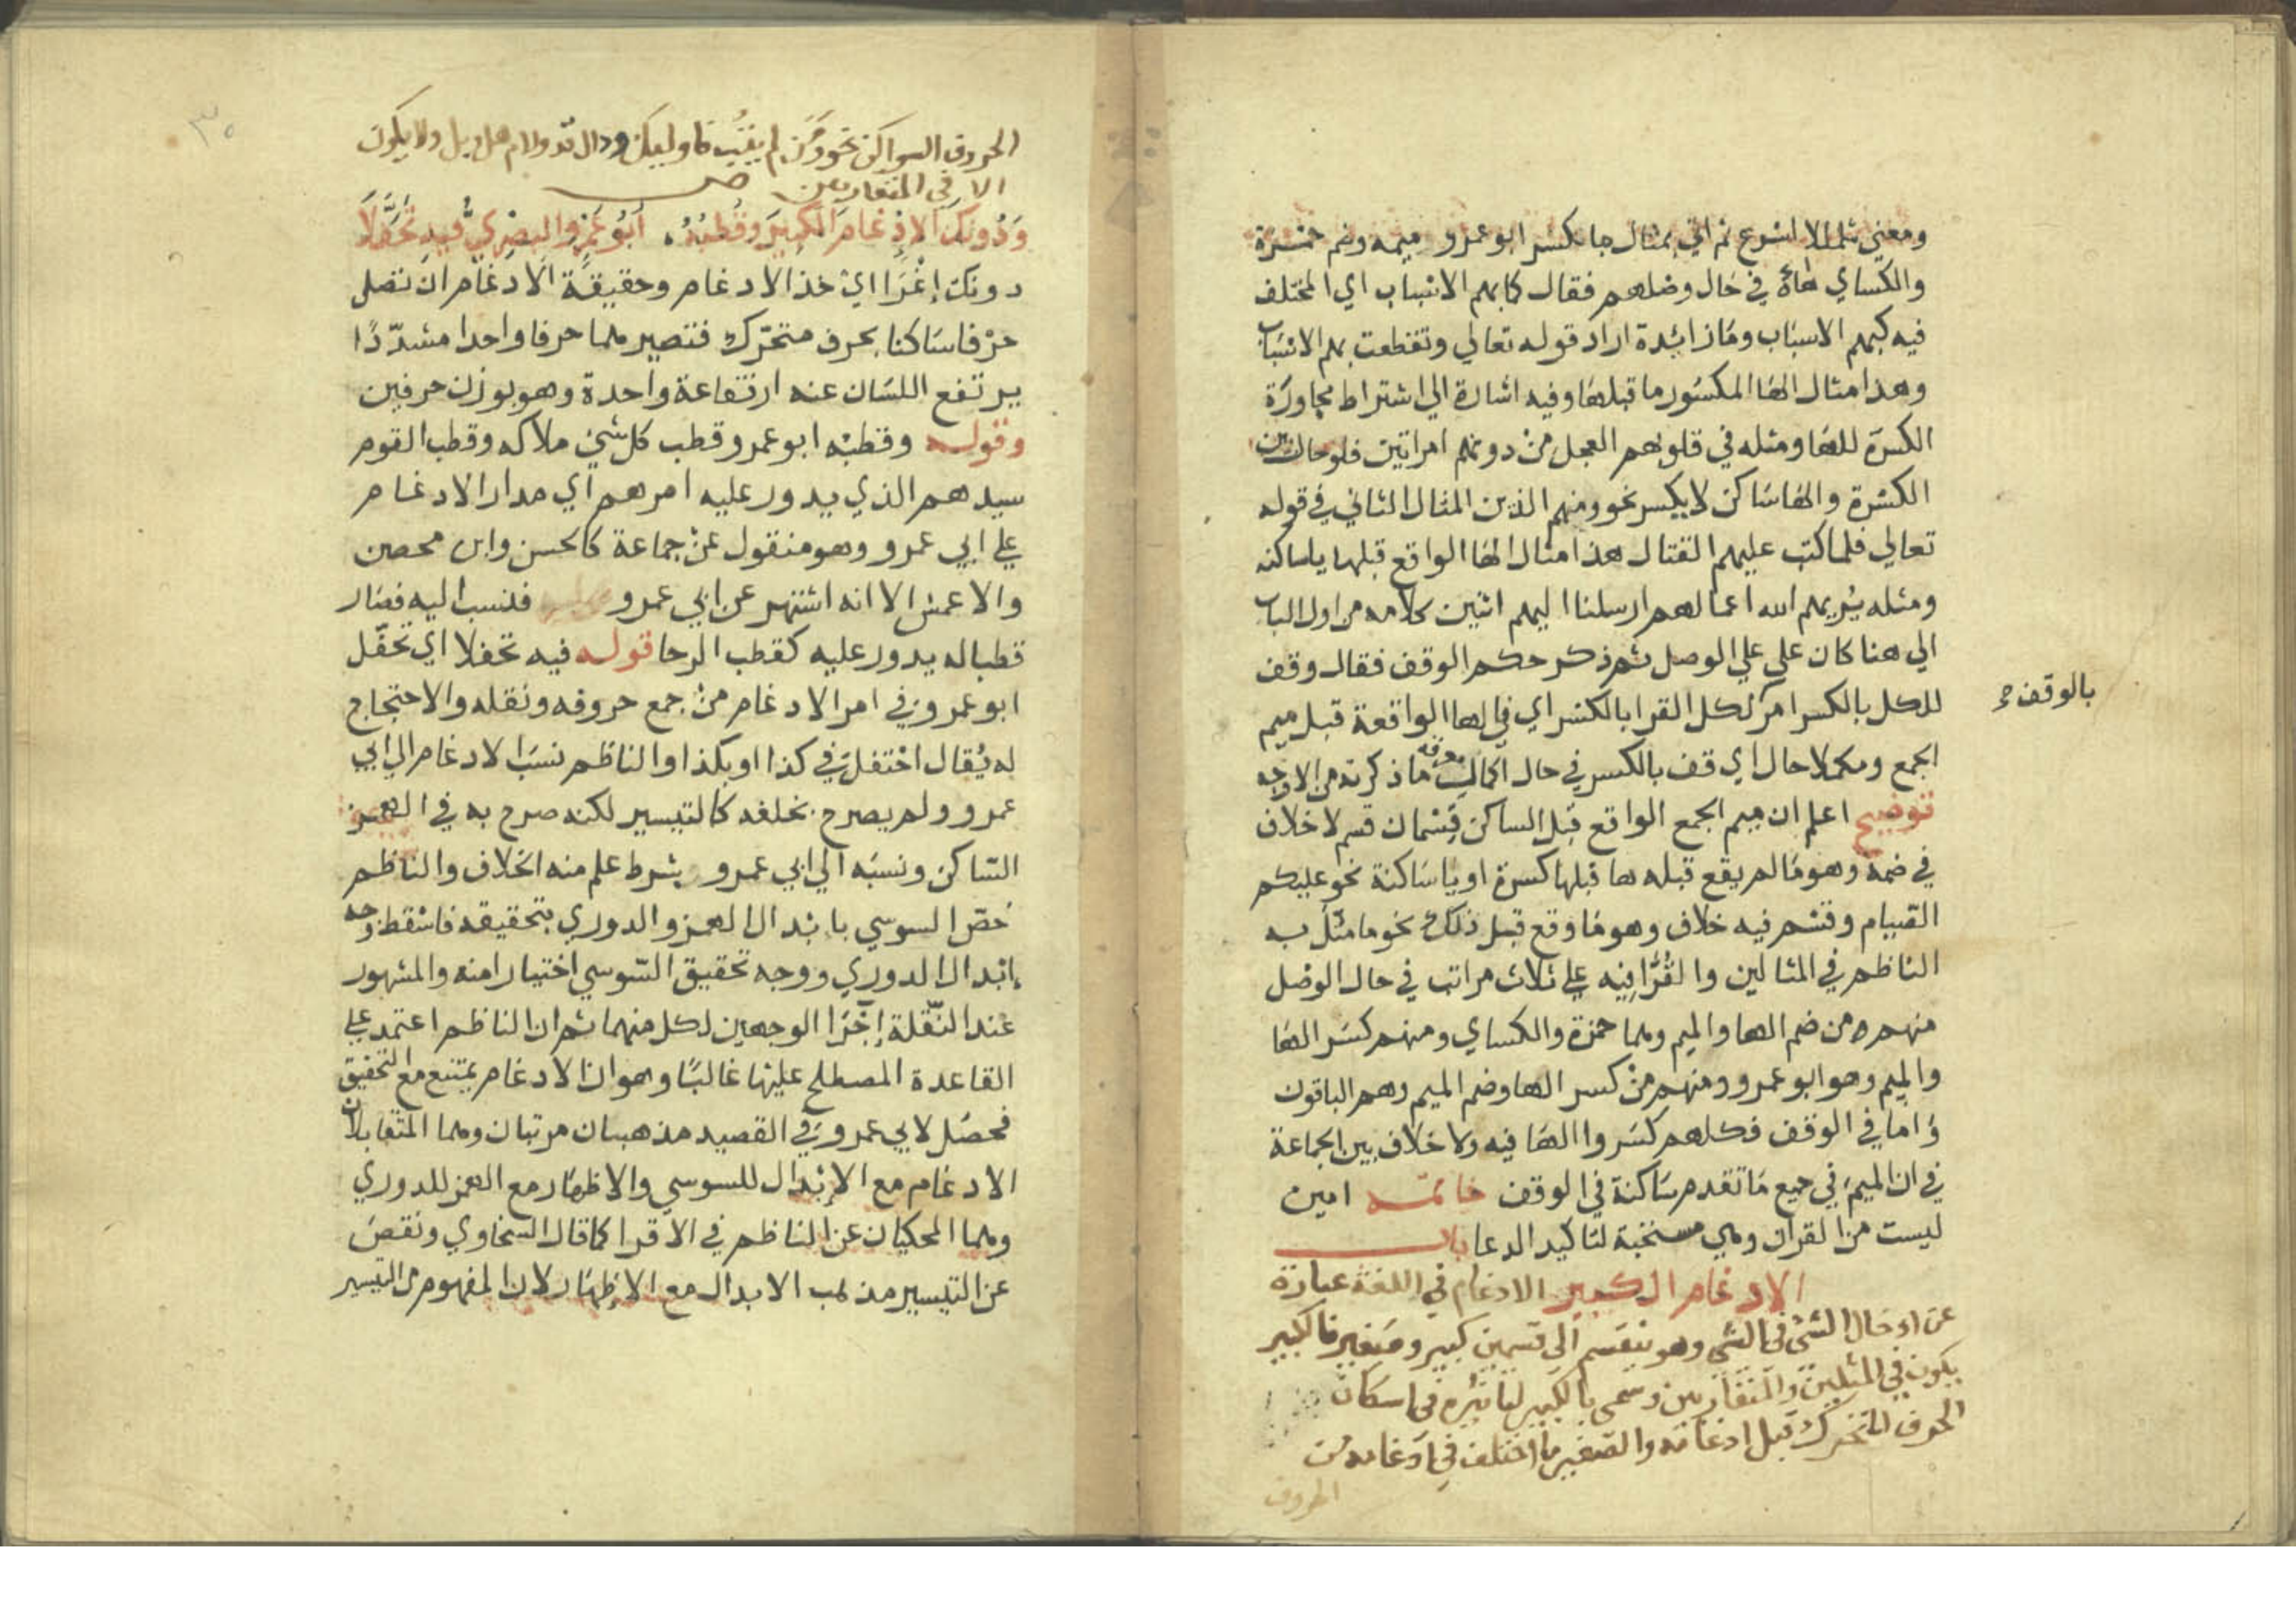 ومعني شمللا اسرع ثم اتي بمثال ما كسر ابو عمرو ميمه وضم حمزة
والكساي هاه في حال وصلهم فقال كما بهم الاسباب اي المختلف
فيه كبهم الاسباب وما زائدة اراد قوله تعالي وتقطعت بهم الاسباب
وهذا مثال الها المكسور ما قبلها وفيه اشارة الي اشتراط مجاورة
الكسرة للها ومثله في قلوبهم العجل من دونهم امراتين فلو حال بين
الكسرة والها ساكن لا يكسر نحو ومنهم الذين المثال الثاني في قوله
تعالي فلما كتب عليهم القتال هذا مثال الها الواقع قبلها يا ساكنه
ومثله يريهم الله اعمالهم ارسلنا اليهم اثنين كلامه من اول الباب
الي هنا كان علي علي الوصل ثم ذكر حكم الوقف فقال وقف
للكل بالكسر امر لكل القرا بالكسر اي في الها الواقعة قبل ميم
بالوقف
الجمع ومكملا حال اي قف بالكسر في حال اكمالك معرفه ما ذكرته من الاوجه
توضيح اعلم ان ميم الجمع الواقع قبل الساكن قسمان قسم لا خلاف
في ضمه وهو ما لم يقع قبله ها قبلها كسرة او يا ساكنة نحو عليكم
الصيام وقسم فيه خلاف وهو ما وقع قبل ذلك نحو ما مثل به
الناظم في المثالين والقرا فيه علي ثلاث مراتب في حال الوصل
منهم من ضم الها والميم وهما حمزة والكساي ومنهم كسر الها
والميم وهو ابو عمرو ومنهم من كسر الها وضم الميم وهم الباقون
واما في الوقف فكلهم كسروا الها فيه ولا خلاف بين الجماعة
في ان الميم في جميع ما تقدم ساكنة في الوقف خاتمه امين
ليست من القران وهي مستحبة لتاكيد الدعا باب
الادغام الكبير الادغام في اللغة عبارة
عن ادخال الشئ في الشي وهو ينقسم الي قسمين كبير وصغير فالكبير
يكون في المثلين والمتقاربين وسمي بالكبير لتاثيره في اسكان
الحرف المتحرك قبل ادغامه والصغير ما اختلف في ادغامه من
الحروف
٣٠
الحروف السواكن نحو ومن لم يتب فاوليك ودال قد ولام هل وبل ولا يكون
الا في المتقاربين ص
وَدُونَكَ الادْغامَ الكبيرَ وقُطْبُهُ . أبُو عَمْرٍو البصْرِيُّ فيهِ تَحَفَّلَا
دونك إغرا اي خذ الادغام وحقيقة الادغام ان تصل
حرفا ساكنا بحرف متحرك فتصيرهما حرفا واحدا مشددا
يرتفع اللسان عنه ارتفاعة واحدة وهو بوزن حرفين
وقوله وقطبه ابو عمرو قطب كل شئ ملاكه وقطب القوم
سيدهم الذي يدور عليه امرهم اي مدار الادغام
علي ابي عمرو وهو منقول عن جماعة كالحسن وابن محصين
والاعمش الا انه اشتهر عن ابي عمرو فنسب اليه فصار
قطبا له يدور عليه كقطب الرحا قوله فيه تحفلا اي تحفل
ابو عمرو في امر الادغام من جمع حروفه ونقله والاحتجاج
له يقال احتفلت في كذا او بكذا والناظم نسب الادغام الي ابي
عمرو ولم يصرح بخلفه كالتيسير لكنه صرح به في الهمز
الساكن ونسبه الي ابي عمرو بشرط علم منه الخلاف والناظم
خص السوسي بابدال الهمز والدوري بتحقيقه فاسقط وجه
ابدال الدوري ووجه تحقيق السوسي اختيارا منه والمشهور
عند النقلة إجرا الوجهين لكل منهما ثم ان الناظم اعتمد علي
القاعدة المصطلح عليها غالبا وهو ان الادغام يمتنع مع التحقيق
فحصل لابي عمرو في القصيد مذهبان مرتبان وهما المتقابلان
الادغام مع الإبدال للسوسي والاظهار مع الهمز للدوري
وهما المحكيان عن الناظم في الاقرا كما قال السخاوي ونقص
عن التيسير مذهب الابدال مع الاظهار لان المفهوم من التيسير